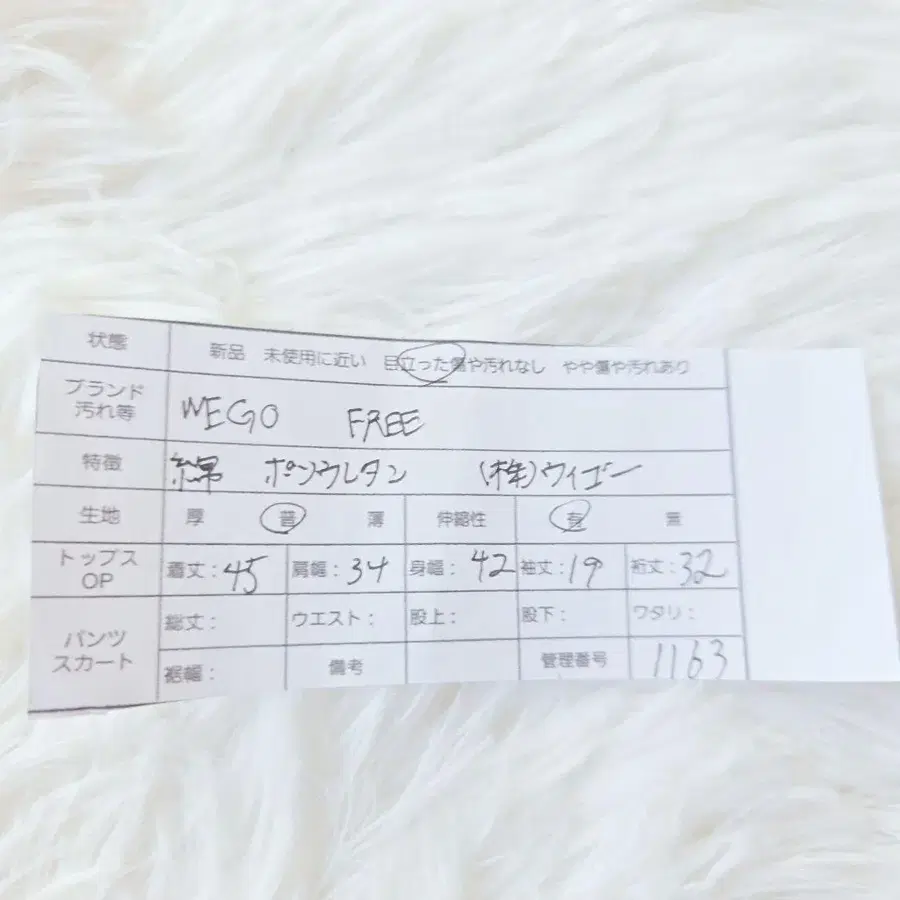 状態 新品 未使用に近い 目立った傷や汚れなし やや傷や汚れあり
ブランド
汚れ等 WEGO FREE
特徴 綿 ポリウレタン (株)ウィゴー
生地 厚 普 薄 伸縮性 有 無
トップス
OP 着丈:45 肩幅:34 身幅:42 袖丈:19 裄丈:32
パンツ
スカート 総丈: ウエスト: 股上: 股下: ワタリ:
裾幅: 備考 管理番号 1163